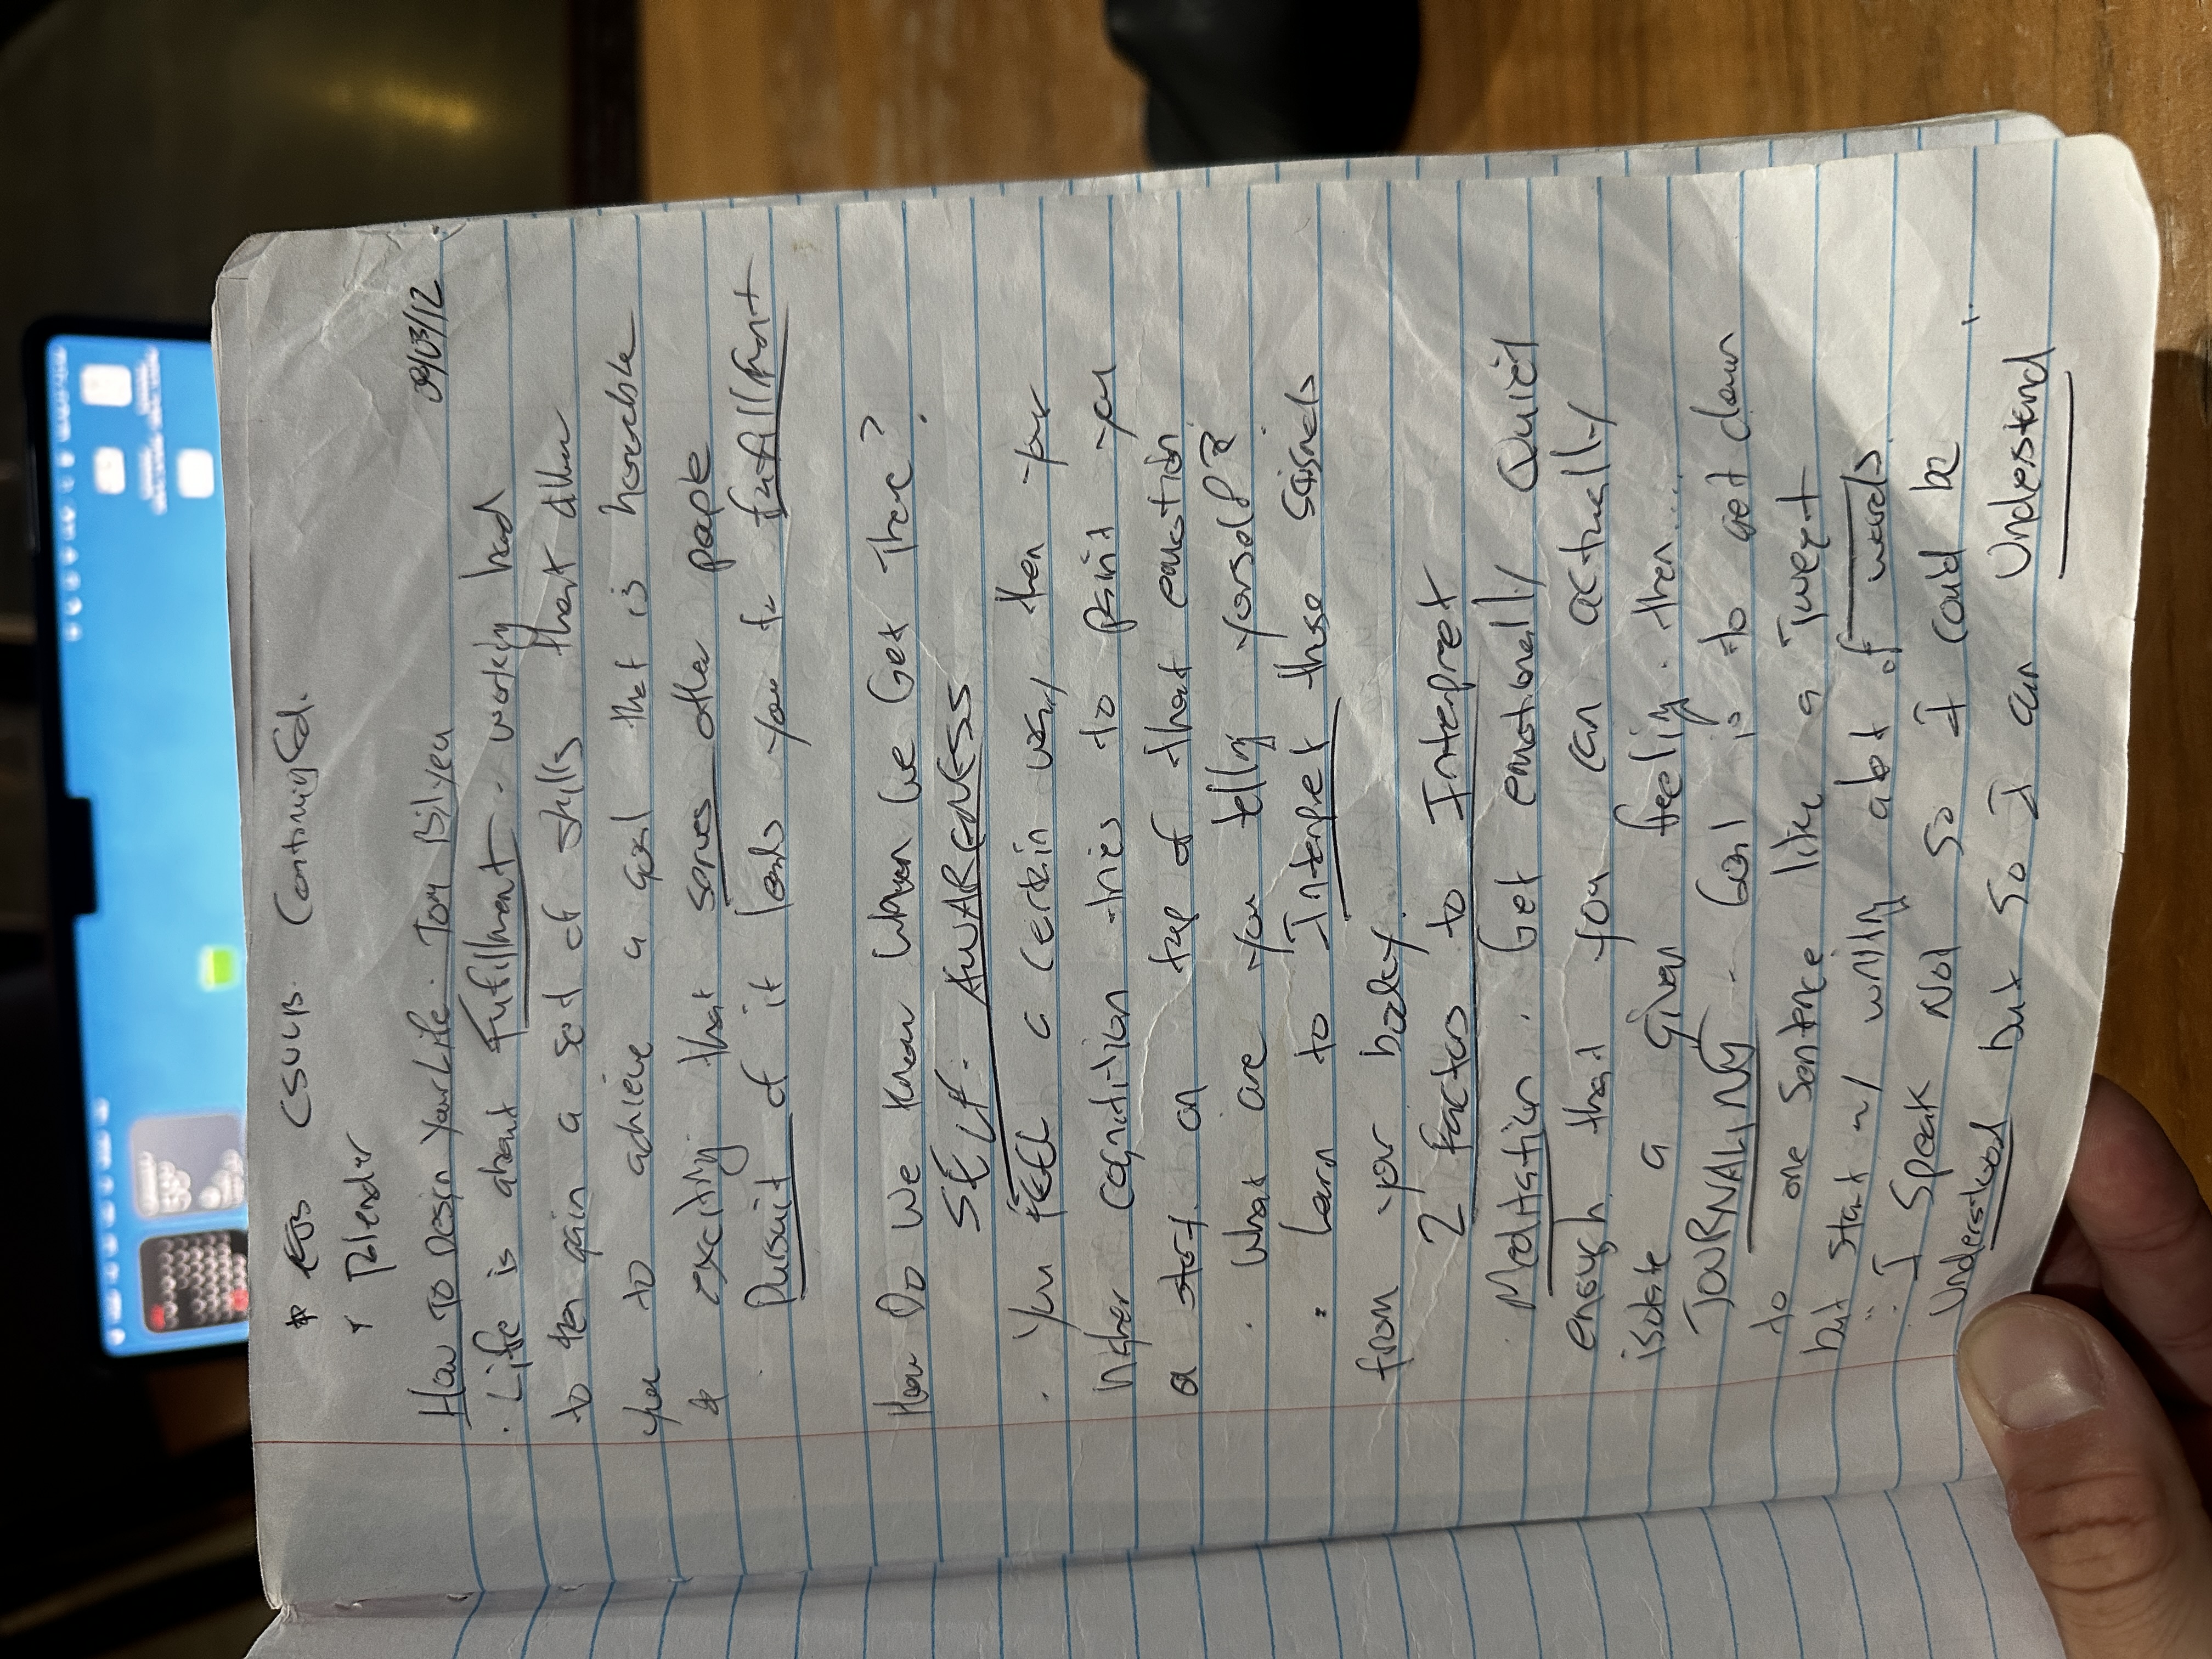 * CSULB. ContinuingEd.
* Blender
How To Design Your Life. Tom Bilyeu
. Life is about Fufillment. working hard
to gain a set of skills that allow
you to achieve a goal that is honorable
& exciting that serves other people
. Pursuit of it leads you to fufillment
How Do We Know When We Get There?
SELF. AWARENESS
. You FEEL a certain way, then your
higher cognition tries to paint you
a story on top of that emotion
. What are you telling yourself?
. Learn to Interpret those signals
from your body.
2 factors to Interpret
. Meditation. Get emotionally Quiet
enough that you can actually
isolate a given feeling. then...
JOURNALING - Goal is to get down
to one sentence like a Tweet
but start w/ writing a lot of words
"I Speak Not So I could be
Understood but So I can Understand"